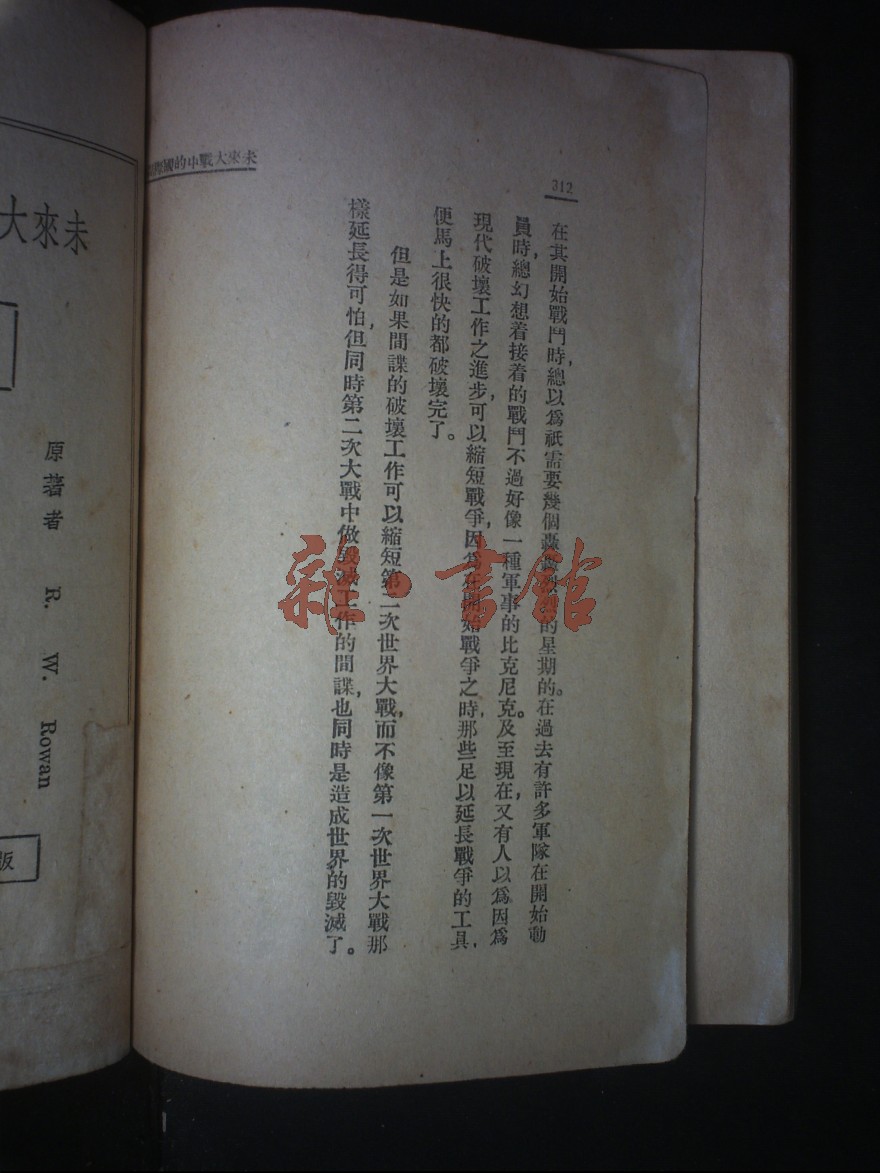 312
在其開始戰鬥時，總以爲祇需要幾個轟轟烈烈的星期的。在過去有許多軍隊在開始動
員時，總幻想着接着的戰鬥不過好像一種軍事的比克尼克。及至現在，又有人以爲因爲
現代破壞工作之進步，可以縮短戰爭，因爲在開始戰爭之時，那些足以延長戰爭的工具，
便馬上很快的都破壞完了。
但是如果間諜的破壞工作可以縮短第二次世界大戰，而不像第一次世界大戰那
樣延長得可怕，但同時第二次大戰中做毀滅工作的間諜，也同時是造成世界的毀滅了。
未來大戰中的國際
未來大
原著者 R. W. Rowan
版
雜·書館